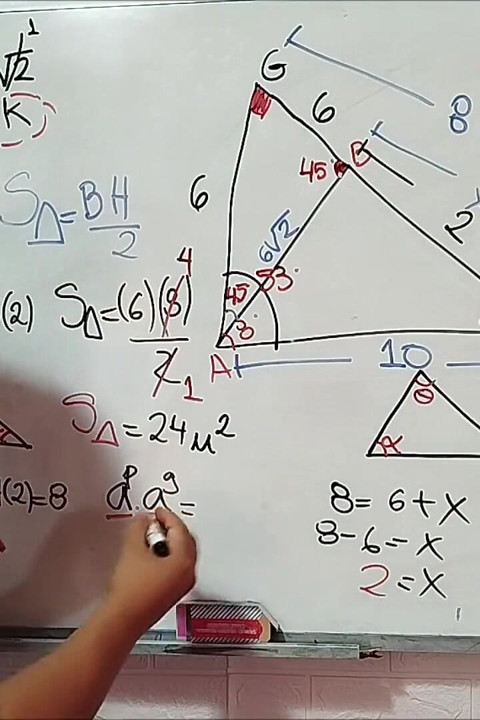 √2
1
K
G
6
8
45° B
6
6√2
2
53°
45
8°
A
10
S△=BH/2
(2) S△=(6)(8)/2
4
1
S△=24u²
(2)=8 a^p.a^9=
θ
α
8=6+x
8-6=x
2=x